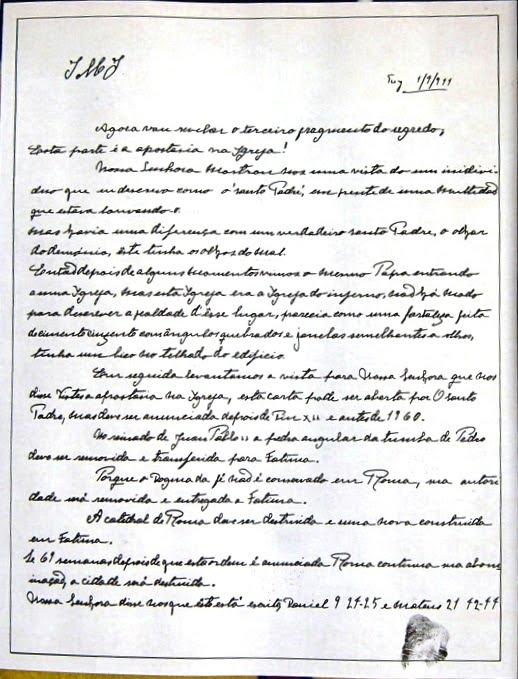 JMJ
Tuy 1/9/1944
Agora vou revelar o terceiro fragmento do segredo;
Esta parte é a apostasia na Igreja!
Nossa Senhora mostrou nos uma vista do um individ
duo que eu descrevo como o 'santo Padre', em frente de uma multidão
que estava louvando-o.
Mas havia uma diferença com um verdadeiro santo Padre, o olhar
do demónio, éste tinha os olhos do mal.
Então depois de alguns momentos vimos o mesmo Papa entrando
a uma Igreja, mas esta Igreja era a Igreja do inferno, não há modo
para descrever a fealdade d'ésse lugar, parecia como uma fortaleza feita
de cimento cinzento com ângulos quebrados e janelas semelhantes a olhos,
tinha um bico no telhado do edificio.
Em seguida levantamos a vista para Nossa Senhora que nos
disse Vistes a apostasia na Igreja, esta carta pode ser aberta por O santo
Padre, mas deve ser anunciada depois de Pio XII e antes de 1960.
No reinado de Juan Pablo II a pedra angular da tumba de Pedro
deve ser removida e transferida para Fatima.
Porque o Dogma da fé não é conservado em Roma, sua autori
dade será removida e entregada a Fatima.
A catedral de Roma deve ser destruida e uma nova construida
em Fatima.
Se 69 semanas depois de que esta ordem é anunciada Roma continua sua abom
inação, a cidade será destruida.
Nossa Senhora disse nos que éste está escrito, Daniel 9 24-25 e Mateus 21 42-44